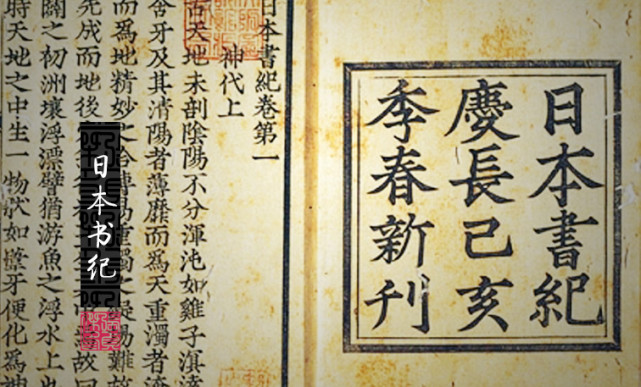 日本書紀
慶長己亥
季春新刊
日本書紀卷第一
神代上
古天地未剖陰陽不分渾沌如雞子溟
含牙及其清陽者薄靡而爲天重濁者淹
而爲地精妙之合摶易重濁之凝
成而地後
故曰
闢之初洲壤浮漂譬猶游魚之浮水上也
時天地之中生一物狀如葦牙便化爲神
日本书纪